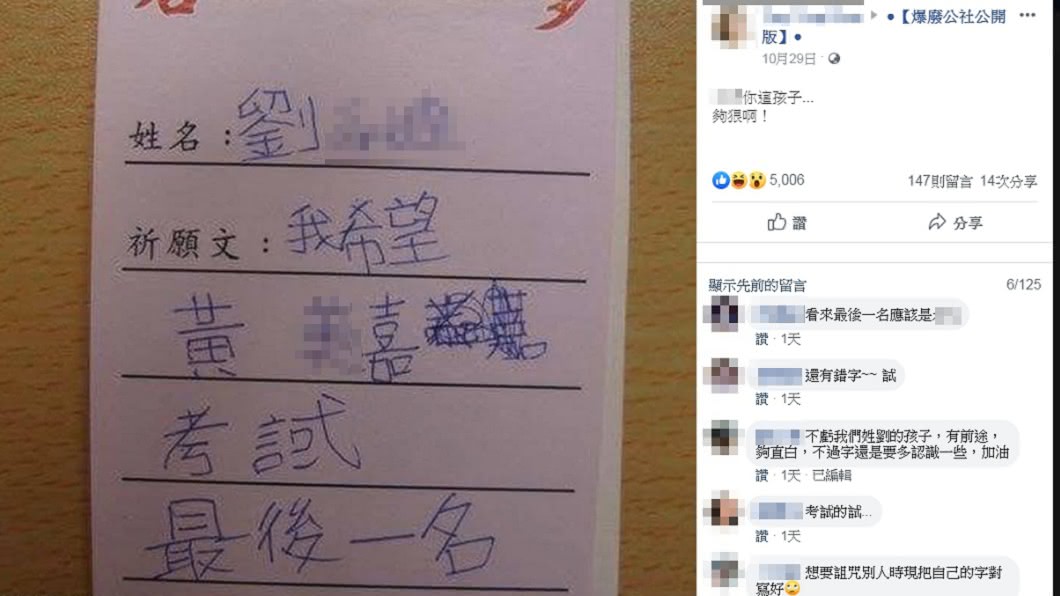 姓名：劉
祈願文：我希望
黃 嘉
考試
最後一名
●【爆廢公社公開
版】●
10月29日
你這孩子...
夠狠啊！
5,006
147則留言 14次分享
讚 分享
顯示先前的留言 6/125
看來最後一名應該是
讚 · 1天
還有錯字~~ 試
讚 · 1天
不虧我們姓劉的孩子，有前途，
夠直白，不過字還是要多認識一些，加油
讚 · 1天 · 已編輯
考試的試...
讚 · 1天
想要詛咒別人時現把自己的字對
寫好